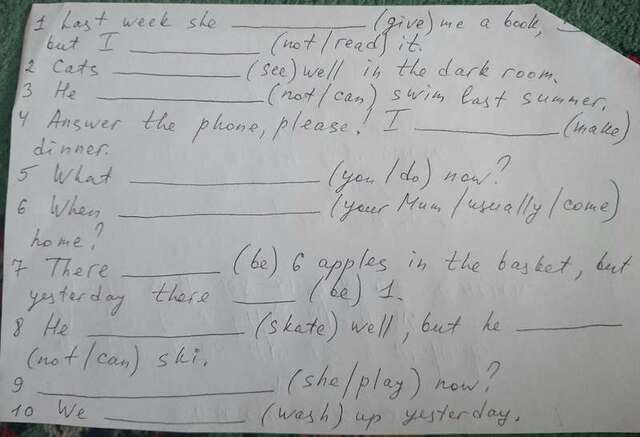 1 Last week she __________ (give) me a book,
but I __________ (not/read) it.
2 Cats __________ (see) well in the dark room.
3 He __________ (not/can) swim last summer.
4 Answer the phone, please! I __________ (make)
dinner.
5 What __________ (you/do) now?
6 When __________ (your Mum/usually/come)
home?
7 There ________ (be) 6 apples in the basket, but
yesterday there _____ (be) 1.
8 He __________ (skate) well, but he ________
(not/can) ski.
9 __________ (she/play) now?
10 We __________ (wash) up yesterday.